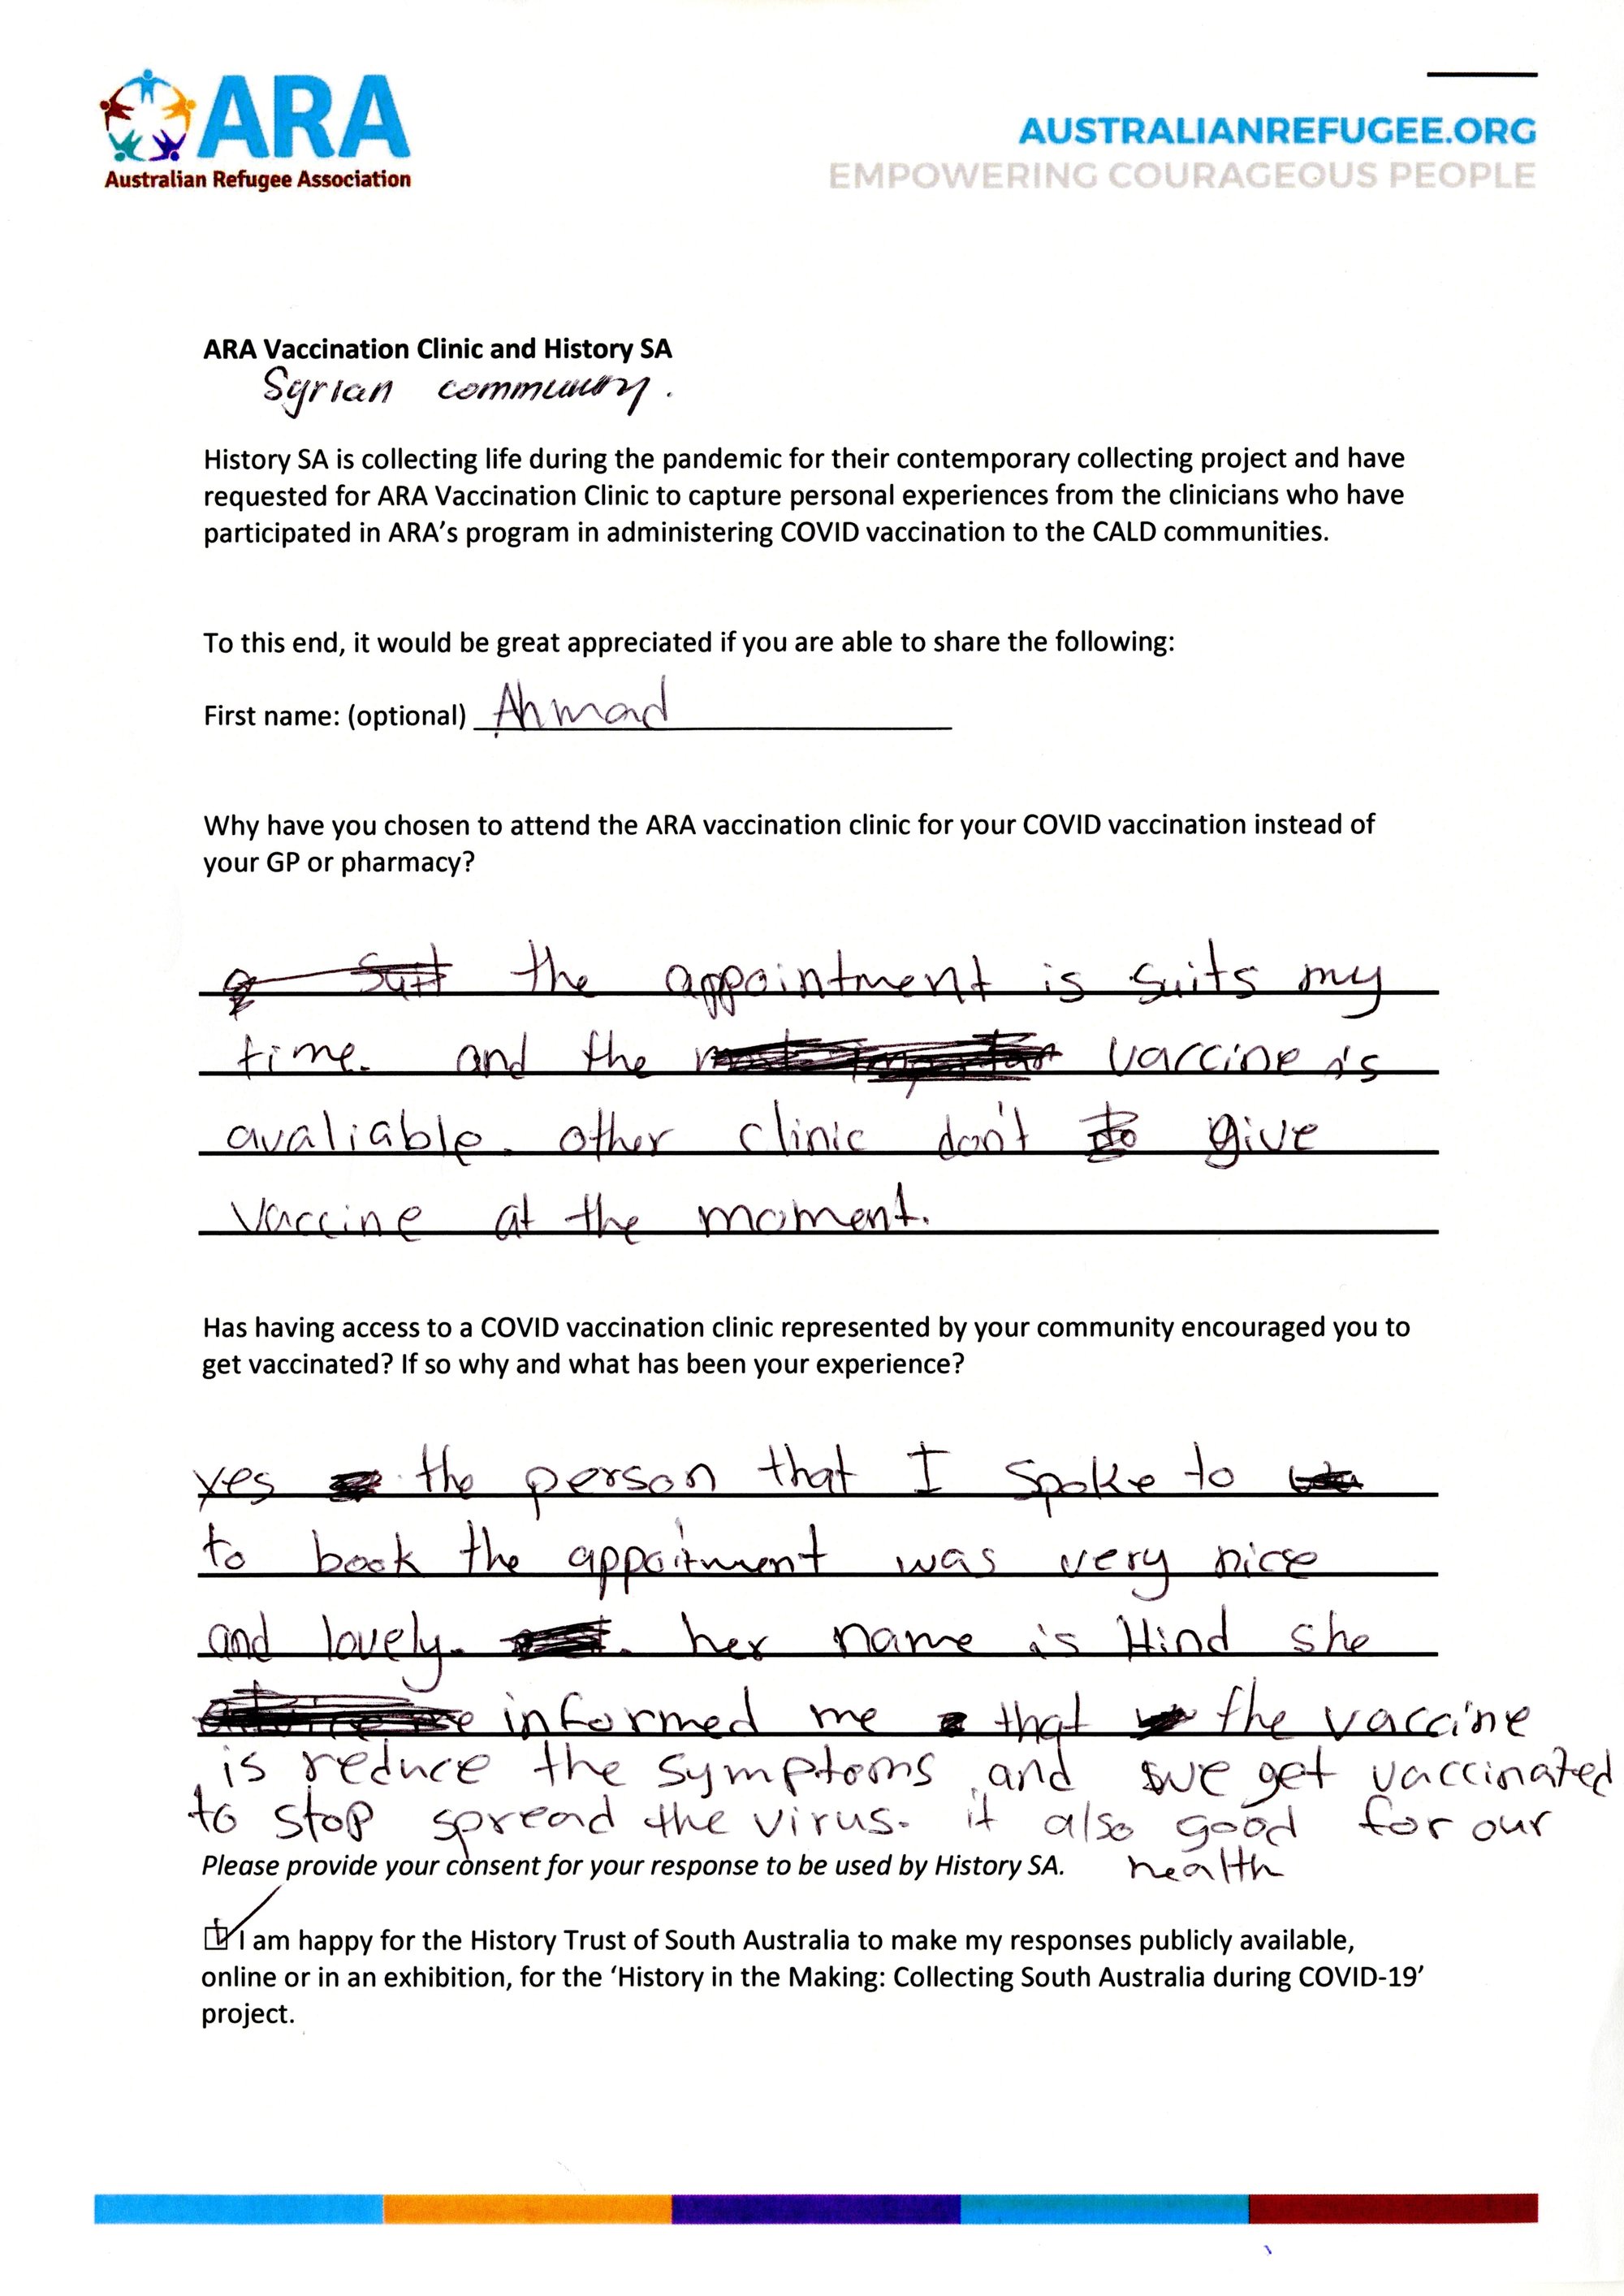 ARA
Australian Refugee Association
AUSTRALIANREFUGEE.ORG
EMPOWERING COURAGEOUS PEOPLE
ARA Vaccination Clinic and History SA
Syrian community.
History SA is collecting life during the pandemic for their contemporary collecting project and have
requested for ARA Vaccination Clinic to capture personal experiences from the clinicians who have
participated in ARA's program in administering COVID vaccination to the CALD communities.
To this end, it would be great appreciated if you are able to share the following:
First name: (optional) Ahmad
Why have you chosen to attend the ARA vaccination clinic for your COVID vaccination instead of
your GP or pharmacy?
the appointment is suits my
time. and the vaccine is
avaliable. other clinic don't give
vaccine at the moment.
Has having access to a COVID vaccination clinic represented by your community encouraged you to
get vaccinated? If so why and what has been your experience?
yes the person that I spoke to
to book the appoitment was very nice
and lovely. her name is Hind she
informed me that the vaccine
is reduce the symptoms and we get vaccinated
to stop spread the virus. it also good for our
Please provide your consent for your response to be used by History SA. health
I am happy for the History Trust of South Australia to make my responses publicly available,
online or in an exhibition, for the 'History in the Making: Collecting South Australia during COVID-19'
project.